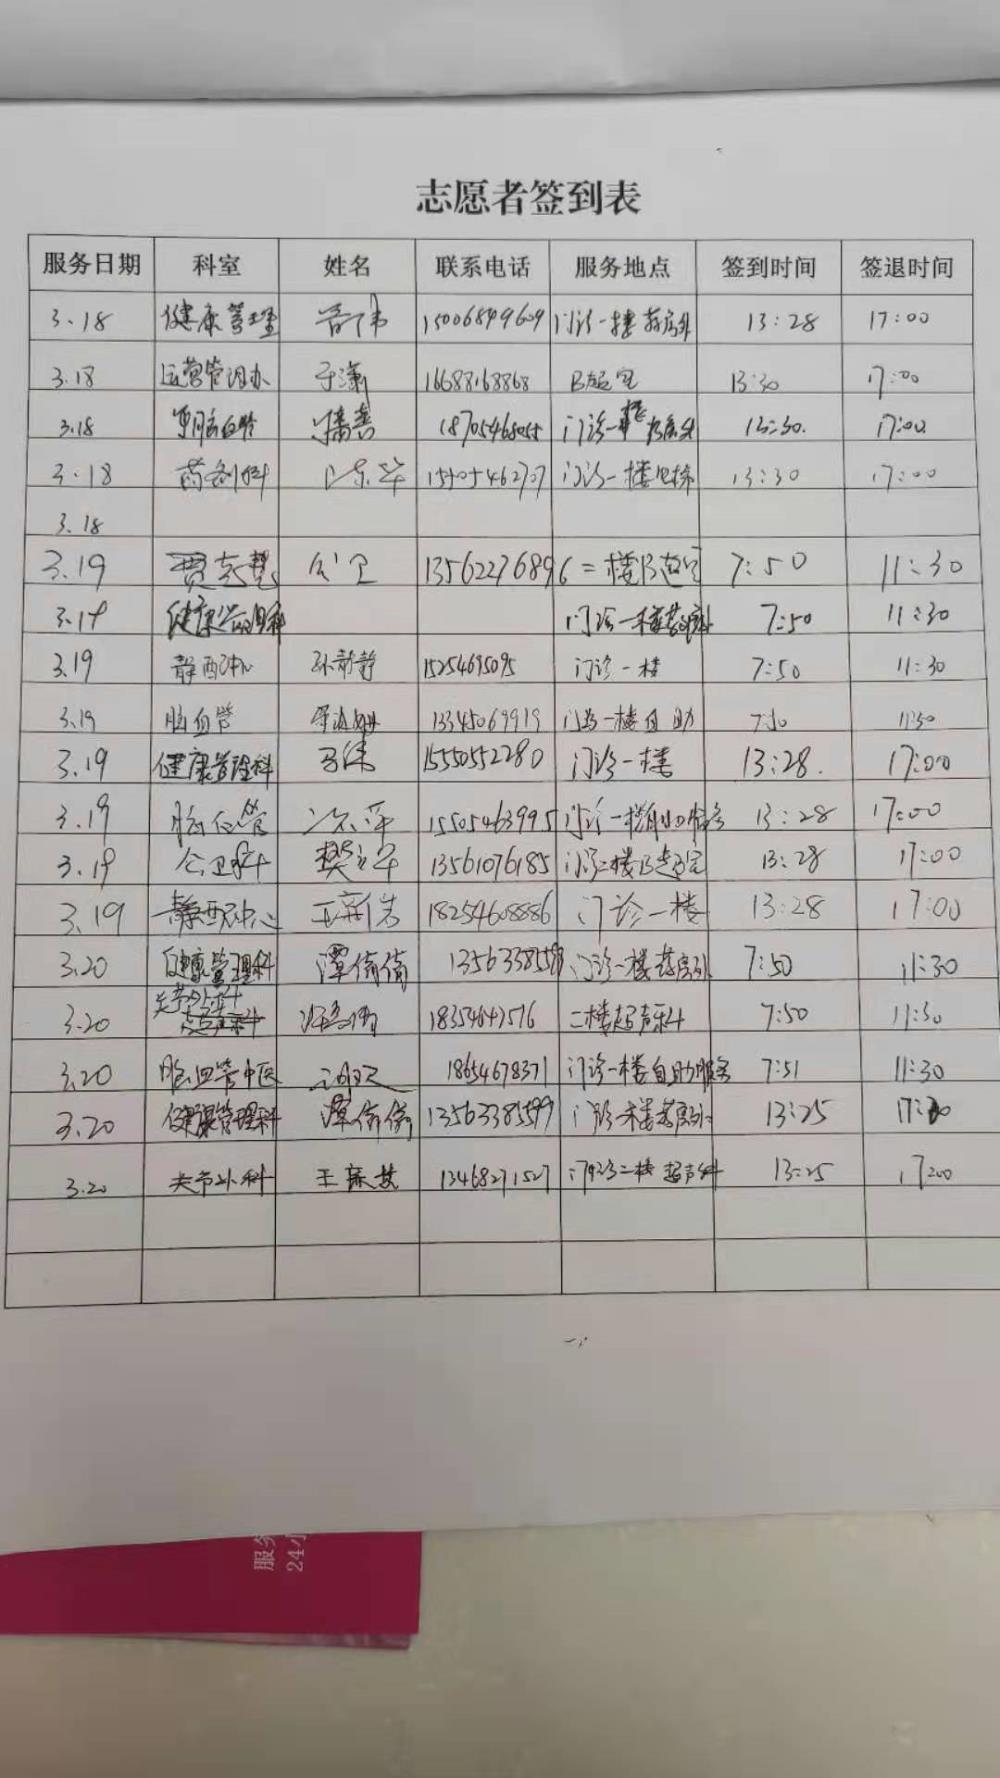 志愿者签到表
服务日期 科室 姓名 联系电话 服务地点 签到时间 签退时间
3.18 健康管理 15006849609 门诊一楼药房外 13:28 17:00
3.18 运营管理办 于潇 16688168868 B超室 13:30 17:00
3.18 18705468055 门诊一楼 13:30. 17:00
3.18 药剂科 15905462707 门诊一楼电梯 13:30 17:00
3.18
3.19 贾志慧 公卫 13562276896 二楼B超室 7:50 11:30
3.19 健康管理科 门诊一楼药房外 7:50 11:30
3.19 静配中心 孙静静 15254695095 门诊一楼 7:50 11:30
3.19 脑血管 13345069919 门诊一楼自助 7:50 11:30
3.19 健康管理科 马伟 15550552280 门诊一楼 13:28. 17:00
3.19 脑血管 15505463995 门诊一楼自助服务 13:28 17:00
3.19 公卫科 樊立军 13561076185 门诊二楼B超室 13:28 17:00
3.19 静配中心 王新岩 18254608886 门诊一楼 13:28 17:00
3.20 健康管理科 谭倩倩 门诊一楼药房外 7:50 11:30
3.20 关节外科 18354647516 二楼超声科 7:50 11:30
3.20 脑血管中医 18654678371 门诊一楼自助服务 7:51 11:30
3.20 健康管理科 谭倩倩 13563385599 门诊一楼药房外 13:25 17:00
3.20 关节外科 王 13468271527 门诊二楼超声科 13:25 17:00
服务
24小